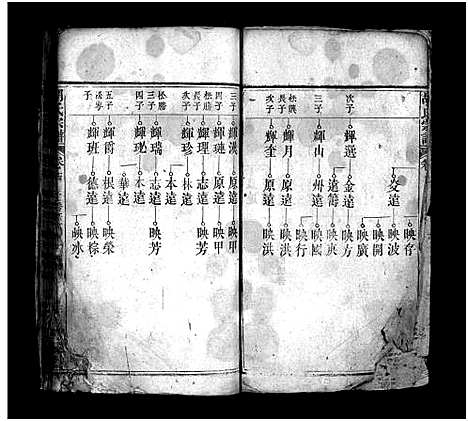 文遠
映存
映波
映開
映廣
次子
輝選
金遠
映方
遠
映東
三子
輝山
州遠
映國
映行
長子
輝月
原遠
映洪
次子
輝奎
原遠
映洪
三子
輝漢
原遠
映甲
四子
輝璉
原遠
映甲
松勝
長子
輝理
志遠
映芳
次子
輝珍
林遠
本遠
松勝
三子
輝瑞
志遠
映芳
四子
輝
本遠
華遠
五子
輝爵
根遠
映榮
子
輝班
德遠
映粽
映氷